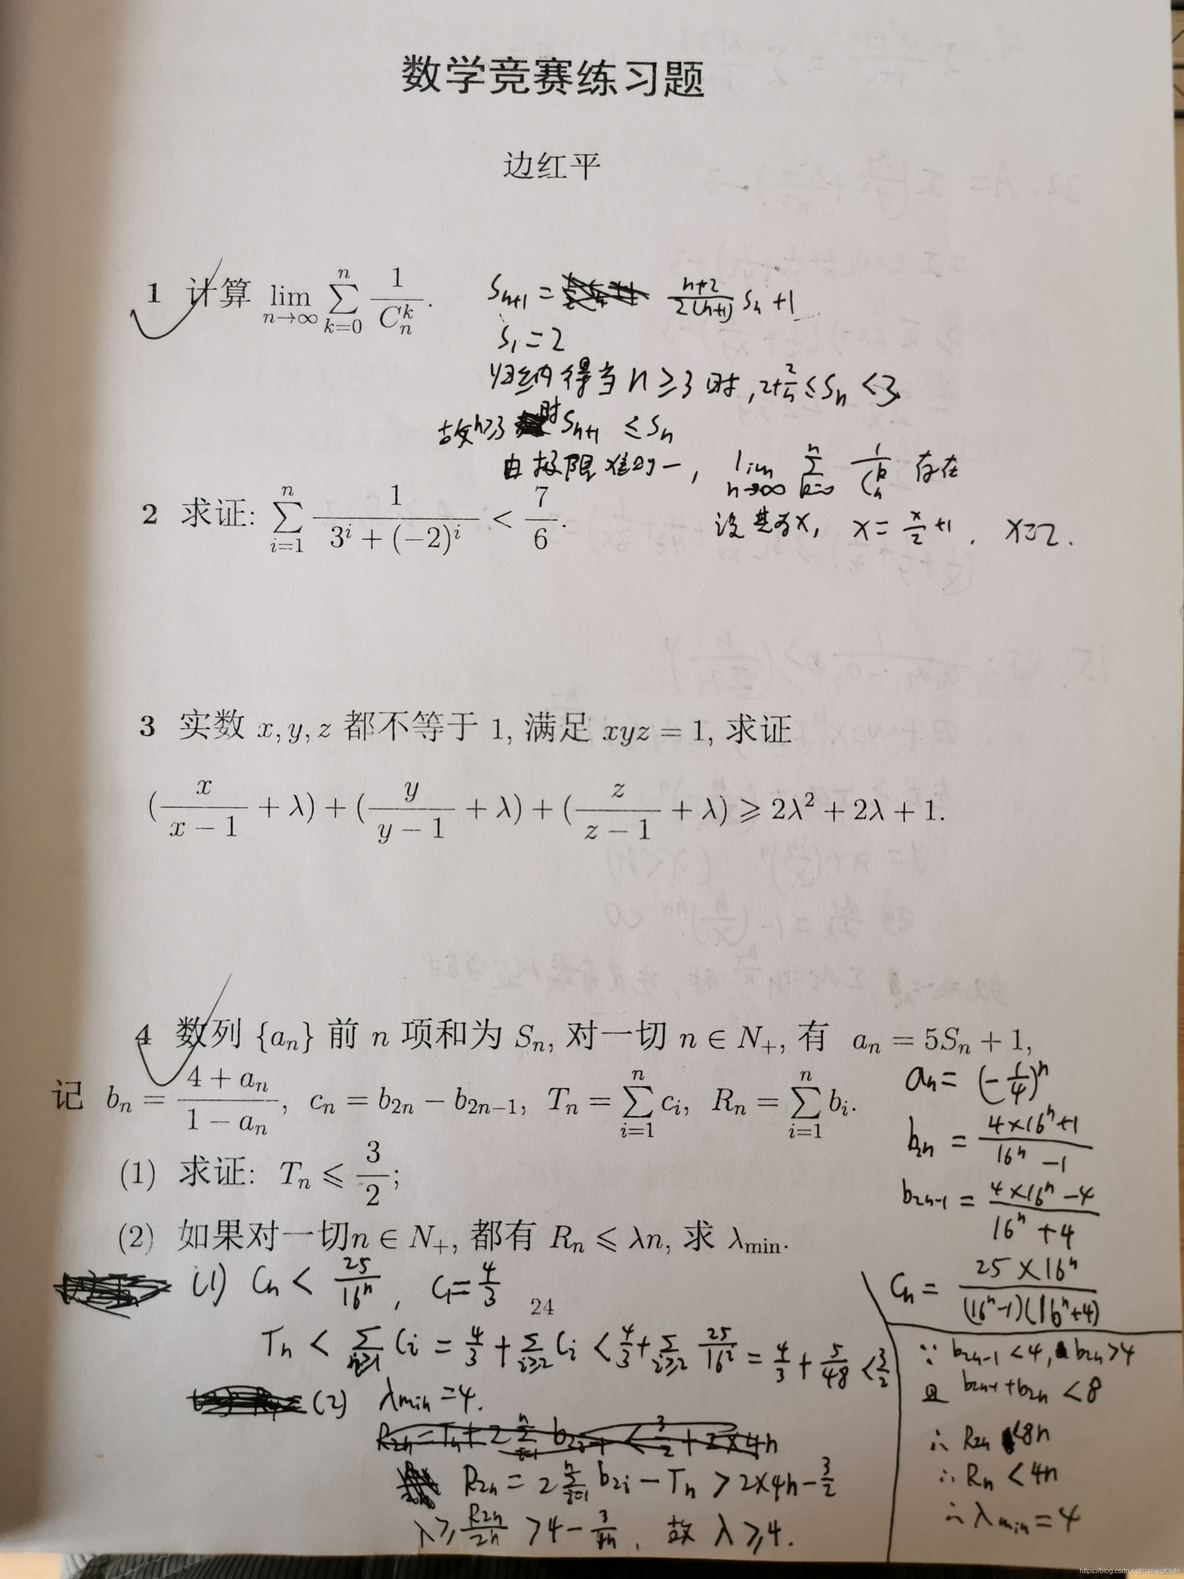 数学竞赛练习题
边红平
1 计算 $\lim_{n\to\infty}\sum_{k=0}^{n}\frac{1}{C_n^k}$.
$S_{n+1} = \frac{n+2}{2(n+1)} S_n + 1$
$S_1 = 2$
归纳得当 n ≥ 3 时, $2+\frac{2}{n} \le S_n < 3$
故 n≥3 时 $S_{n+1} \le S_n$
由极限准则一, $\lim_{n\to\infty}\sum_{k=0}^{n}\frac{1}{C_n^k}$ 存在
设其为x, $x = \frac{x}{2}+1$, x=2.
2 求证: $\sum_{i=1}^{n}\frac{1}{3^i+(-2)^i} < \frac{7}{6}$.
3 实数 x, y, z 都不等于 1, 满足 xyz = 1, 求证
$(\frac{x}{x-1}+\lambda)+(\frac{y}{y-1}+\lambda)+(\frac{z}{z-1}+\lambda) \geqslant 2\lambda^2+2\lambda+1$.
4 数列 $\{a_n\}$ 前 n 项和为 $S_n$, 对一切 $n \in N_+$, 有 $a_n = 5S_n + 1$,
记 $b_n = \frac{4+a_n}{1-a_n}$, $c_n = b_{2n} - b_{2n-1}$, $T_n = \sum_{i=1}^{n} c_i$, $R_n = \sum_{i=1}^{n} b_i$.
(1) 求证: $T_n \leqslant \frac{3}{2}$;
(2) 如果对一切$n \in N_+$, 都有 $R_n \leqslant \lambda n$, 求 $\lambda_{\min}$.
$a_n = (-\frac{1}{4})^n$
$b_{2n} = \frac{4\times16^n+1}{16^n-1}$
$b_{2n-1} = \frac{4\times16^n-4}{16^n+4}$
$C_n = \frac{25\times16^n}{(16^n-1)(16^n+4)}$
(1) $C_n < \frac{25}{16^n}$, $C_1 = \frac{4}{3}$
24
$T_n < \sum_{i\ge1} C_i = \frac{4}{3}+\sum_{i\ge2} C_i < \frac{4}{3}+\sum_{i\ge2}\frac{25}{16^i} = \frac{4}{3}+\frac{5}{48} < \frac{3}{2}$
(2) $\lambda_{\min} = 4$.
$R_{2n} = 2\sum_{i=1}^{n} b_{2i} - T_n > 2\times4n-\frac{3}{2}$
$\lambda \ge \frac{R_{2n}}{2n} > 4-\frac{3}{4n}$, 故 $\lambda \ge 4$.
∵ $b_{2n-1} < 4$, $b_{2n} > 4$
且 $b_{2n-1}+b_{2n} < 8$
∴ $R_{2n} < 8n$
∴ $R_n < 4n$
∴ $\lambda_{\min} = 4$